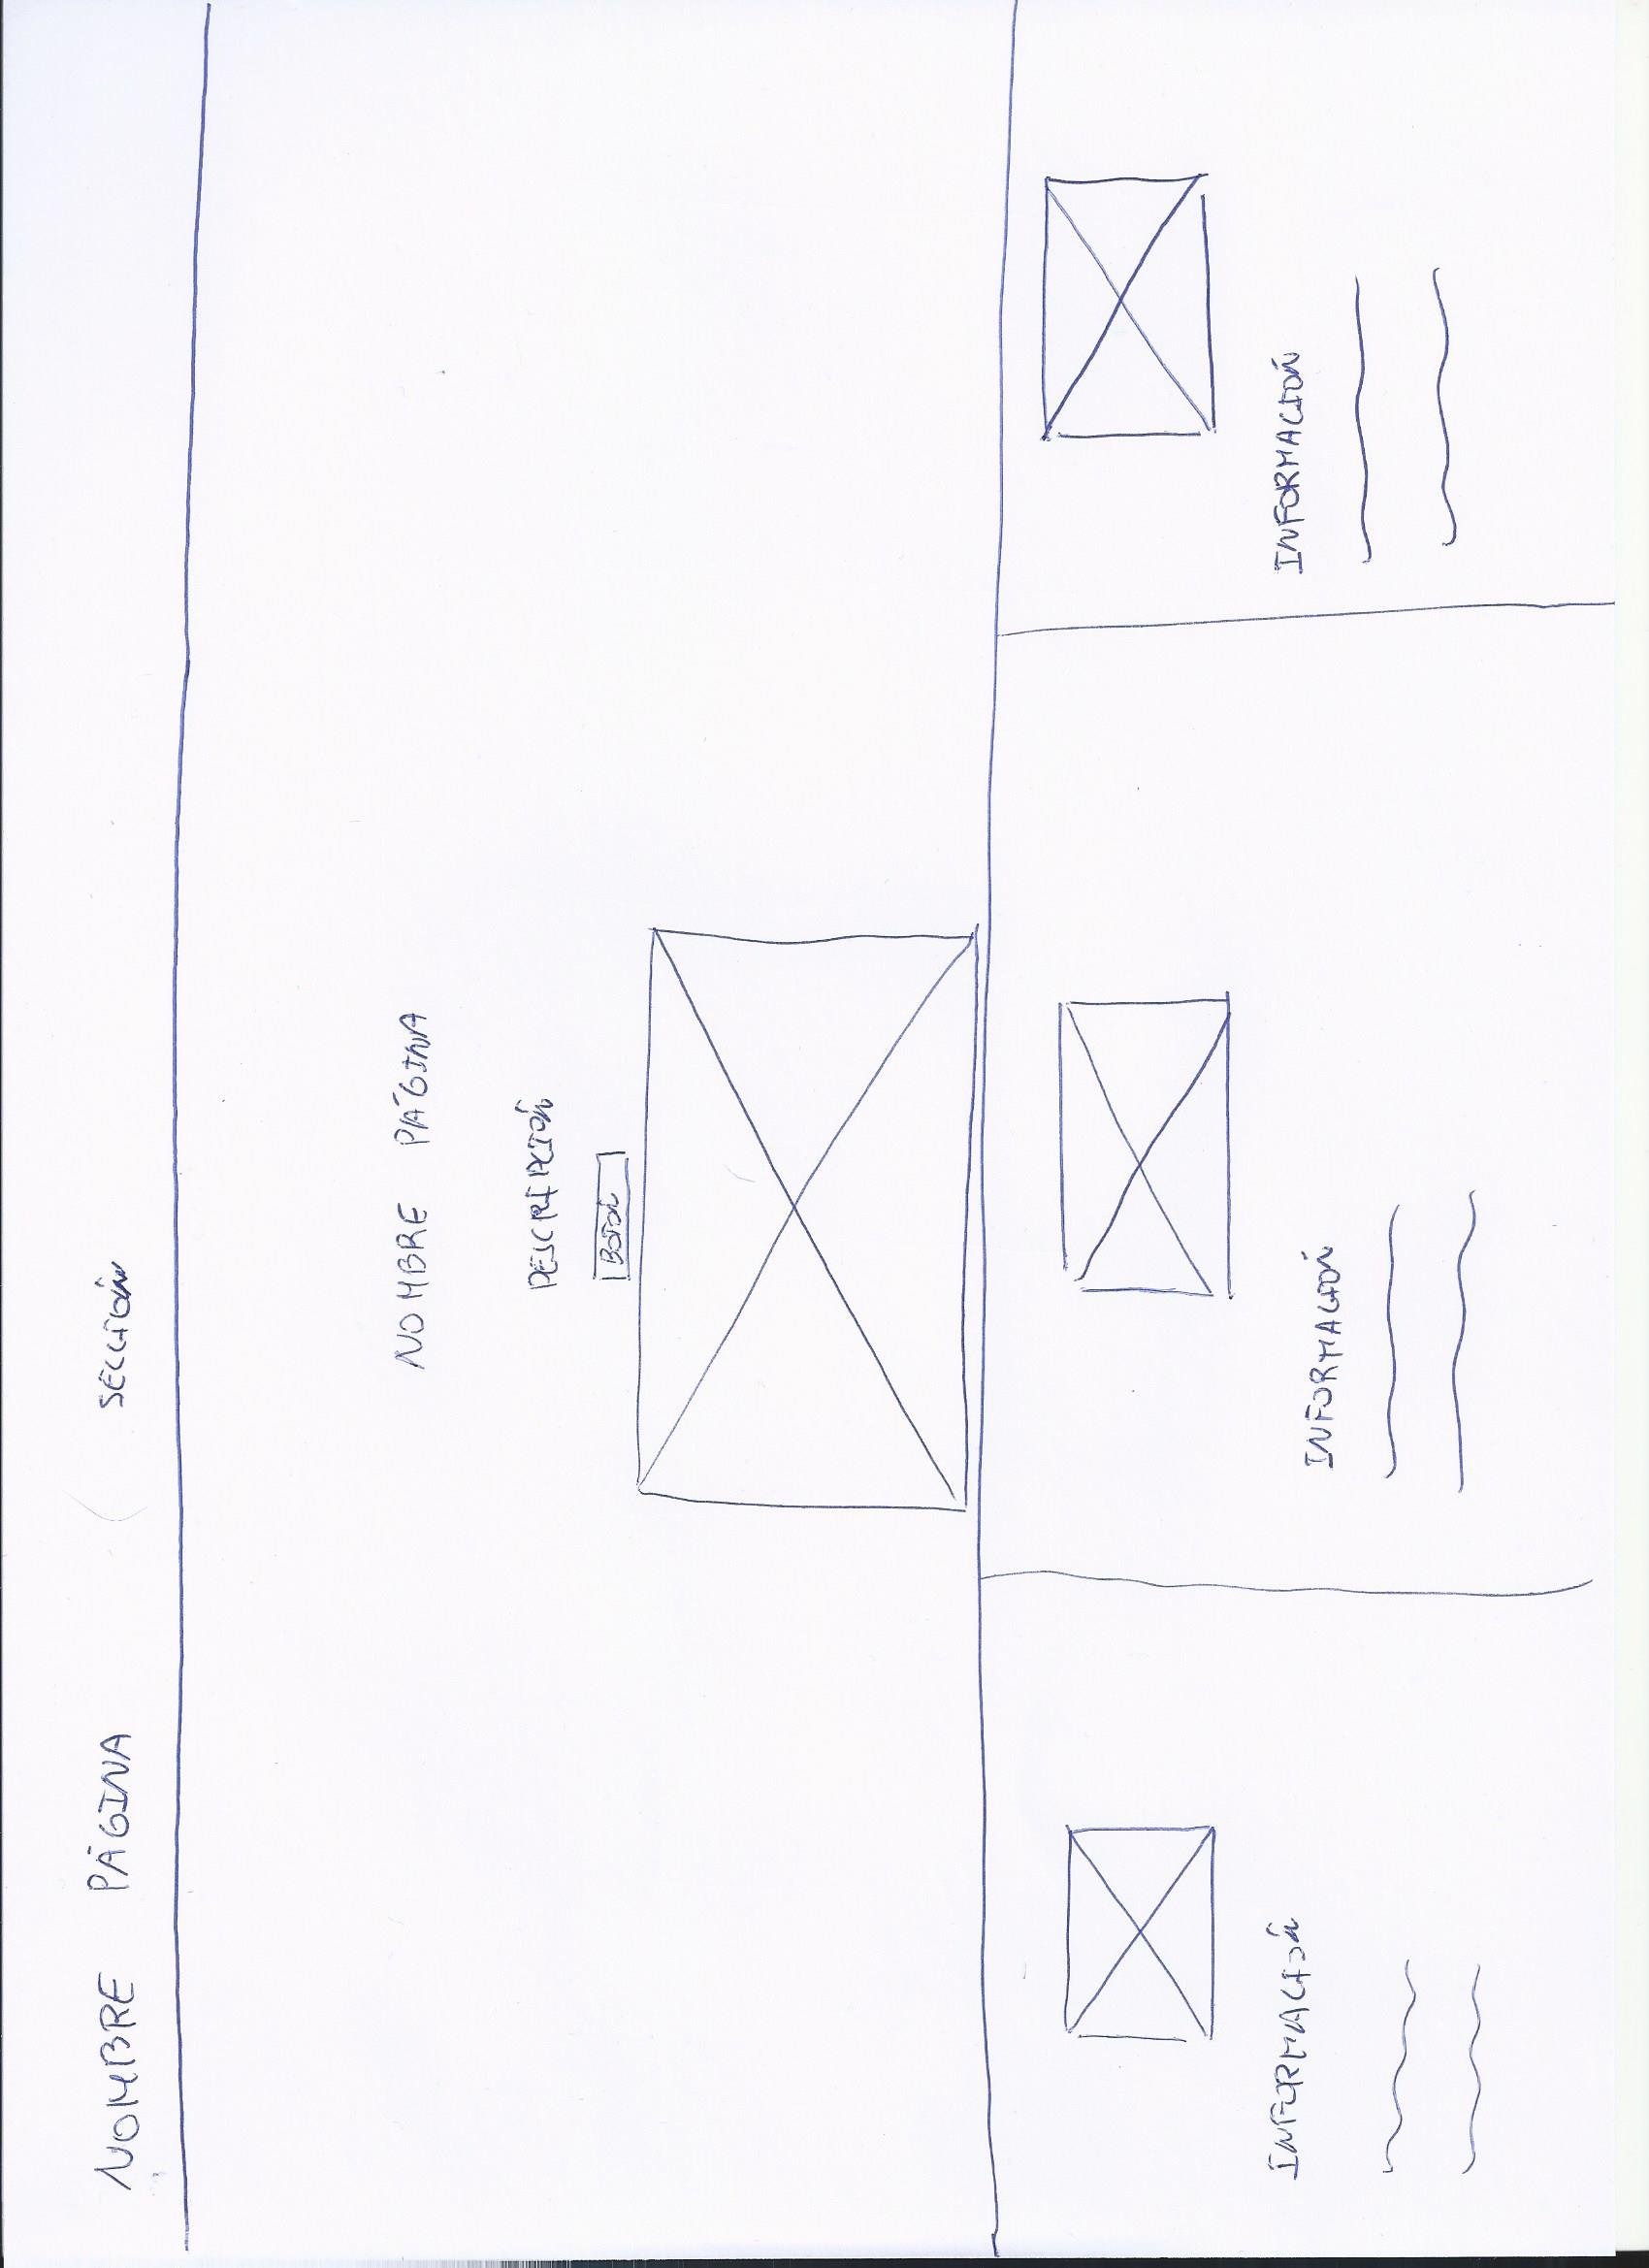 NOMBRE PÁGINA SECCIÓN
NOMBRE PÁGINA
DESCRIPCIÓN
BOTÓN
INFORMACIÓN
INFORMACIÓN
INFORMACIÓN